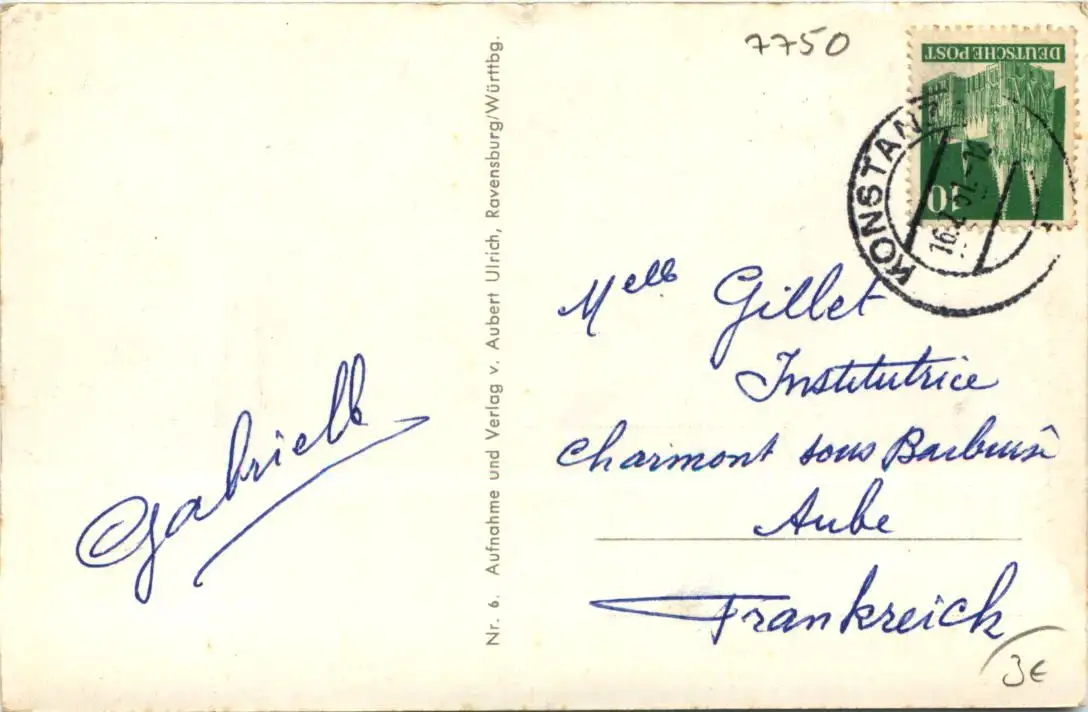 7750
DEUTSCHE POST
10
KONSTANZ
Melle Gillet
Institutrice
Charmont sous Barbuise
Aube
Frankreich
3€
Gabrielle
Nr. 6. Aufnahme und Verlag v. Aubert Ulrich, Ravensburg/Württbg.